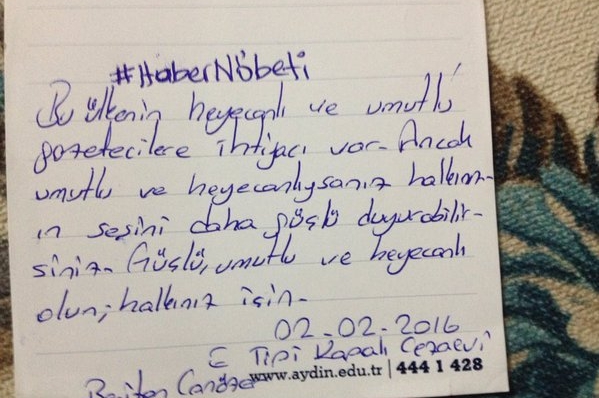 #HaberNöbeti
Bu ülkenin heyecanlı ve umutlu
gazetecilere ihtiyacı var. Ancak
umutlu ve heyecanlıysanız halkınız-
ın sesini daha güçlü duyurabilir-
siniz. Güçlü, umutlu ve heyecanlı
olun; halkınız için.
02-02-2016
E Tipi Kapalı Cezaevi
www.aydin.edu.tr | 444 1 428
Beritan Canözer